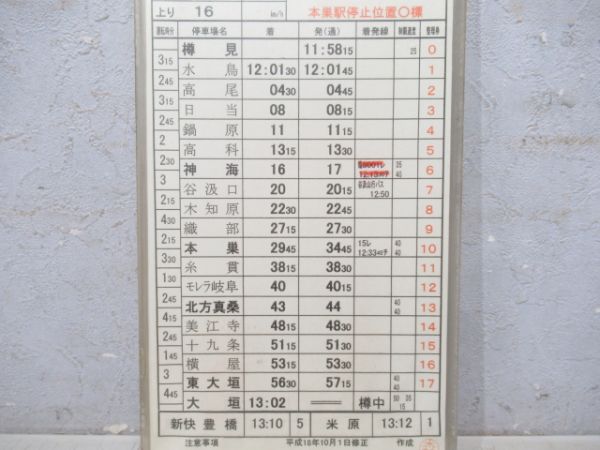 上り 16 km/h 本巣駅停止位置〇標
運転時分 停車場名 着 発(通) 着発線 制限速度 管理率
樽見 11:5815 25 0
315
水鳥 12:0130 12:0145 1
245
高尾 0430 0445 2
315
日当 08 0815 3
245
鍋原 11 1115 4
2
高科 1315 1330 5
230
神海 16 17 35 40 6
3
谷汲口 20 2015 谷汲山行バス 12:50 7
215
木知原 2230 2245 8
430
織部 2715 2730 9
215
本巣 2945 3445 15レ 12:3340チ 40 40 10
330
糸貫 3815 3830 11
130
モレラ岐阜 40 4015 12
245
北方真桑 43 44 40 40 13
415
美江寺 4815 4830 14
245
十九条 5115 5130 15
145
横屋 5315 5330 16
3
東大垣 5630 5715 40 40 17
445
大垣 13:02 ══ 樽中 50 35 15
新快 豊橋 13:10 5 米原 13:12 1
注意事項 平成18年10月1日修正 作成